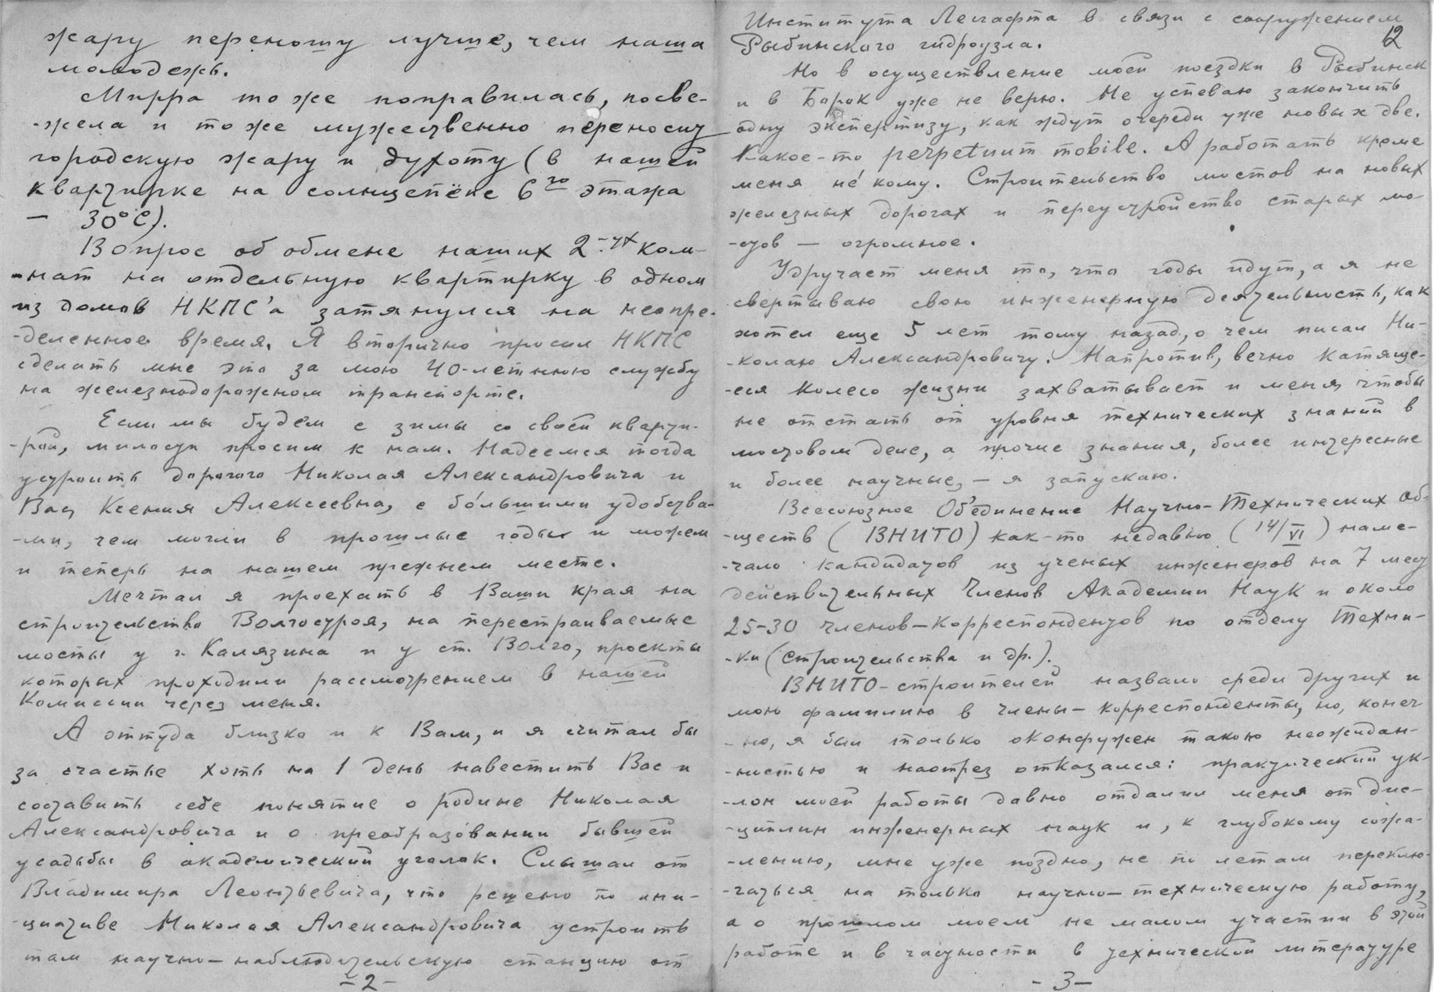 жару переношу лучше, чем наша
молодежь.
Мирра тоже поправилась, посве-
-жела и тоже мужественно переносит
городскую жару и духоту (в нашей
квартирке на солнцепёке 6го этажа
— 30°C).
Вопрос об обмене наших 2-ух ком-
-нат на отдельную квартирку в одном
из домов НКПС'а затянулся на неопре-
-деленное время. Я вторично просил НКПС
сделать мне это за мою 40-летнюю службу
на железнодорожном транспорте.
Если мы будем с зимы со своей кварти-
-рой, милости просим к нам. Надеемся тогда
устроить дорогого Николая Александровича и
Вас, Ксения Алексеевна, с бо́льшими удобства-
-ми, чем могли в прошлые годы и можем
и теперь на нашем прежнем месте.
Мечтал я проехать в Ваши края на
строительство Волгостроя, на перестраиваемые
мосты у г. Калязина и у ст. Волго, проекты
которых проходили рассмотрением в нашей
Комиссии через меня.
А оттуда близко и к Вам, и я считал бы
за счастье хоть на 1 день навестить Вас и
составить себе понятие о родине Николая
Александровича и о преобразовании бывшей
усадьбы в академический уголок. Слышал от
Владимира Леонтьевича, что решено по ини-
-циативе Николая Александровича устроить
там научно-наблюдательскую станцию от
-2-
12
Института Лесгафта в связи с сооружением
Рыбинского гидроузла.
Но в осуществление моей поездки в Рыбинск
и в Борок уже не верю. Не успеваю закончить
одну экспертизу, как ждут очереди уже новых две.
Какое-то perpetuum mobile. А работать кроме
меня не́кому. Строительство мостов на новых
железных дорогах и переустройство старых мо-
-стов — огромное.
Удручает меня то, что годы идут, а я не
свертываю свою инженерную деятельность, как
хотел еще 5 лет тому назад, о чем писал Ни-
-колаю Александровичу. Напротив, вечно катяще-
-еся колесо жизни захватывает и меня, чтобы
не отстать от уровня технических знаний в
мостовом деле, а прочие знания, более интересные
и более научные, — я запускаю.
Всесоюзное Об'единение Научно-Технических Об-
-ществ (ВНИТО) как-то недавно (14/VI) наме-
-чало кандидатов из ученых инженеров на 7 мест
действительных Членов Академии Наук и около
25-30 членов-корреспондентов по отделу Техни-
-ки (строительства и др.).
ВНИТО-строителей назвало среди других и
мою фамилию в члены-корреспонденты, но, конеч-
-но, я был только сконфужен такою неожидан-
-ностью и наотрез отказался: практический ук-
-лон моей работы давно отдалил меня от дис-
-циплин инженерных наук и, к глубокому сожа-
-лению, мне уже поздно, не по летам переклю-
-чаться на только научно-техническую работу,
а о прошлом моем не малом участии в этой
работе и в частности в технической литературе
-3-